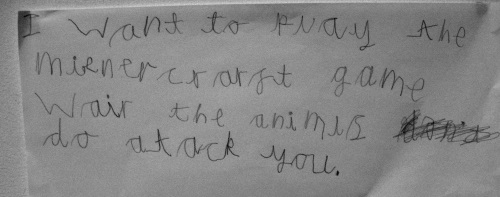 I want to play the
mienercrarft game
wair the animils
do atack you.